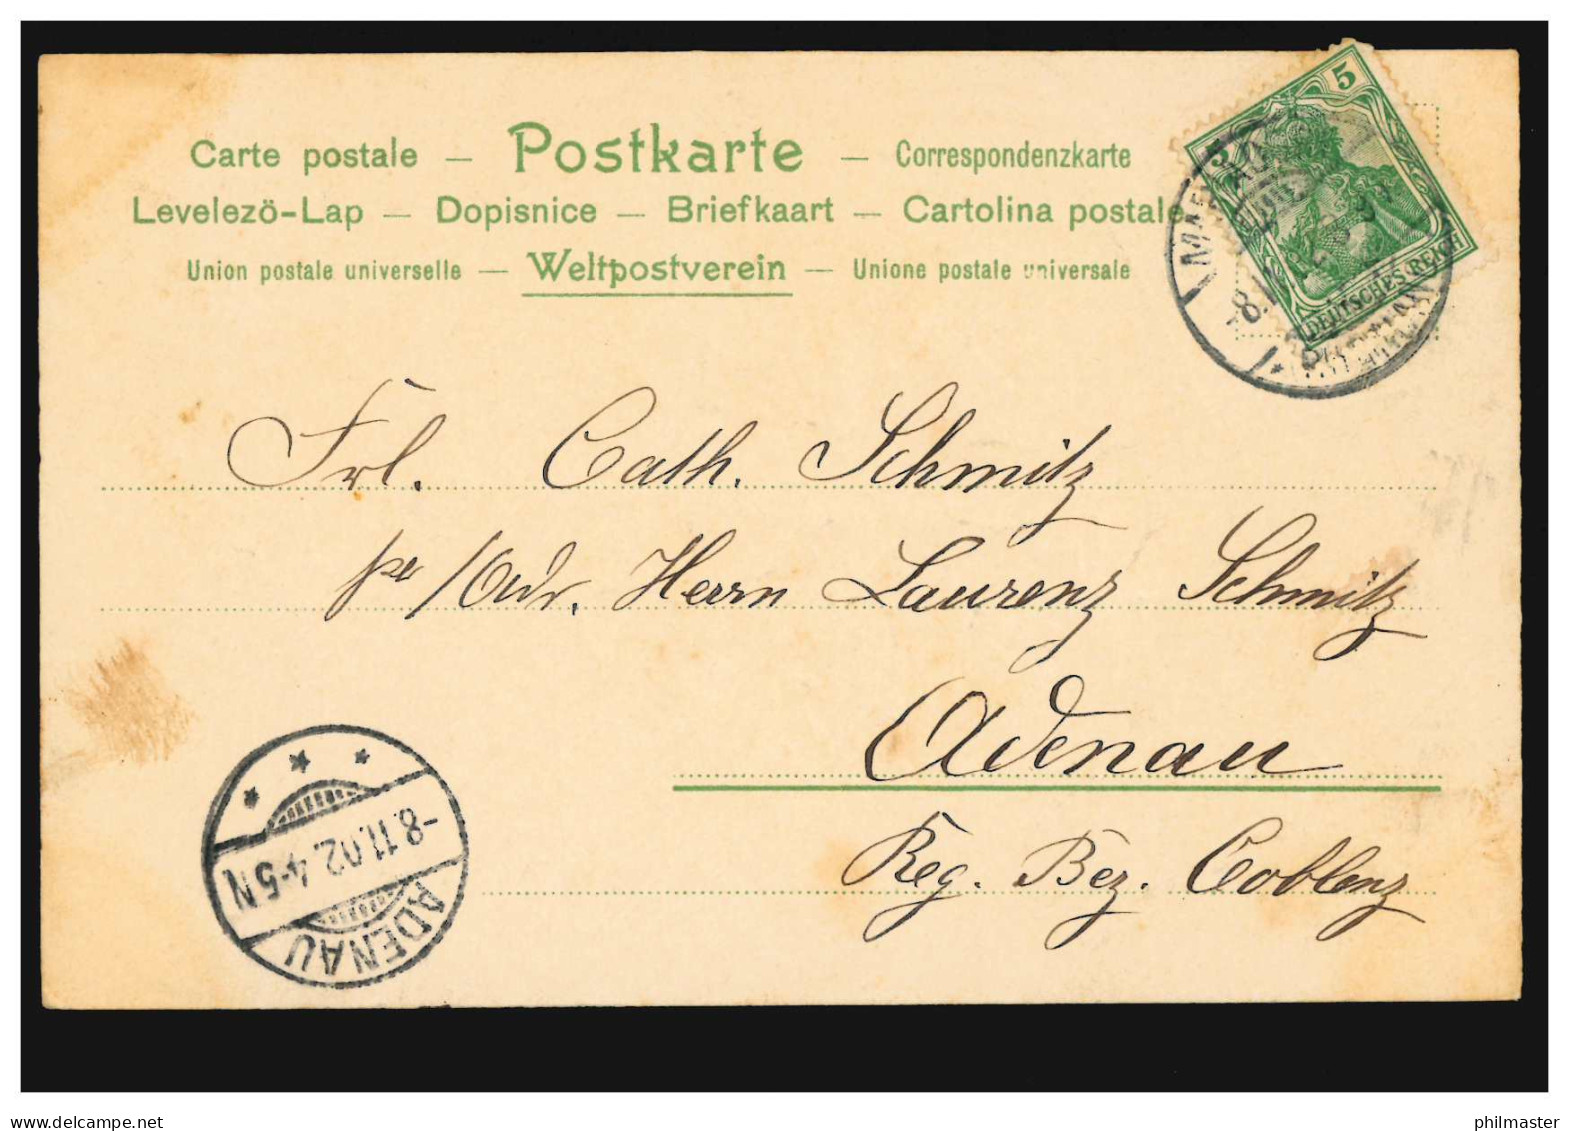 Carte postale – Postkarte – Correspondenzkarte
Levelezö-Lap – Dopisnice – Briefkaart – Cartolina postale
Union postale universelle – Weltpostverein – Unione postale universale
5
5
DEUTSCHES REICH
8.11.
Frl. Cath. Schmitz
per/Adr. Herrn Laurenz Schmitz
Adenau
Reg. Bez. Coblenz
-8.11.02.4-5N
ADENAU
www.delcampe.net
philmaster